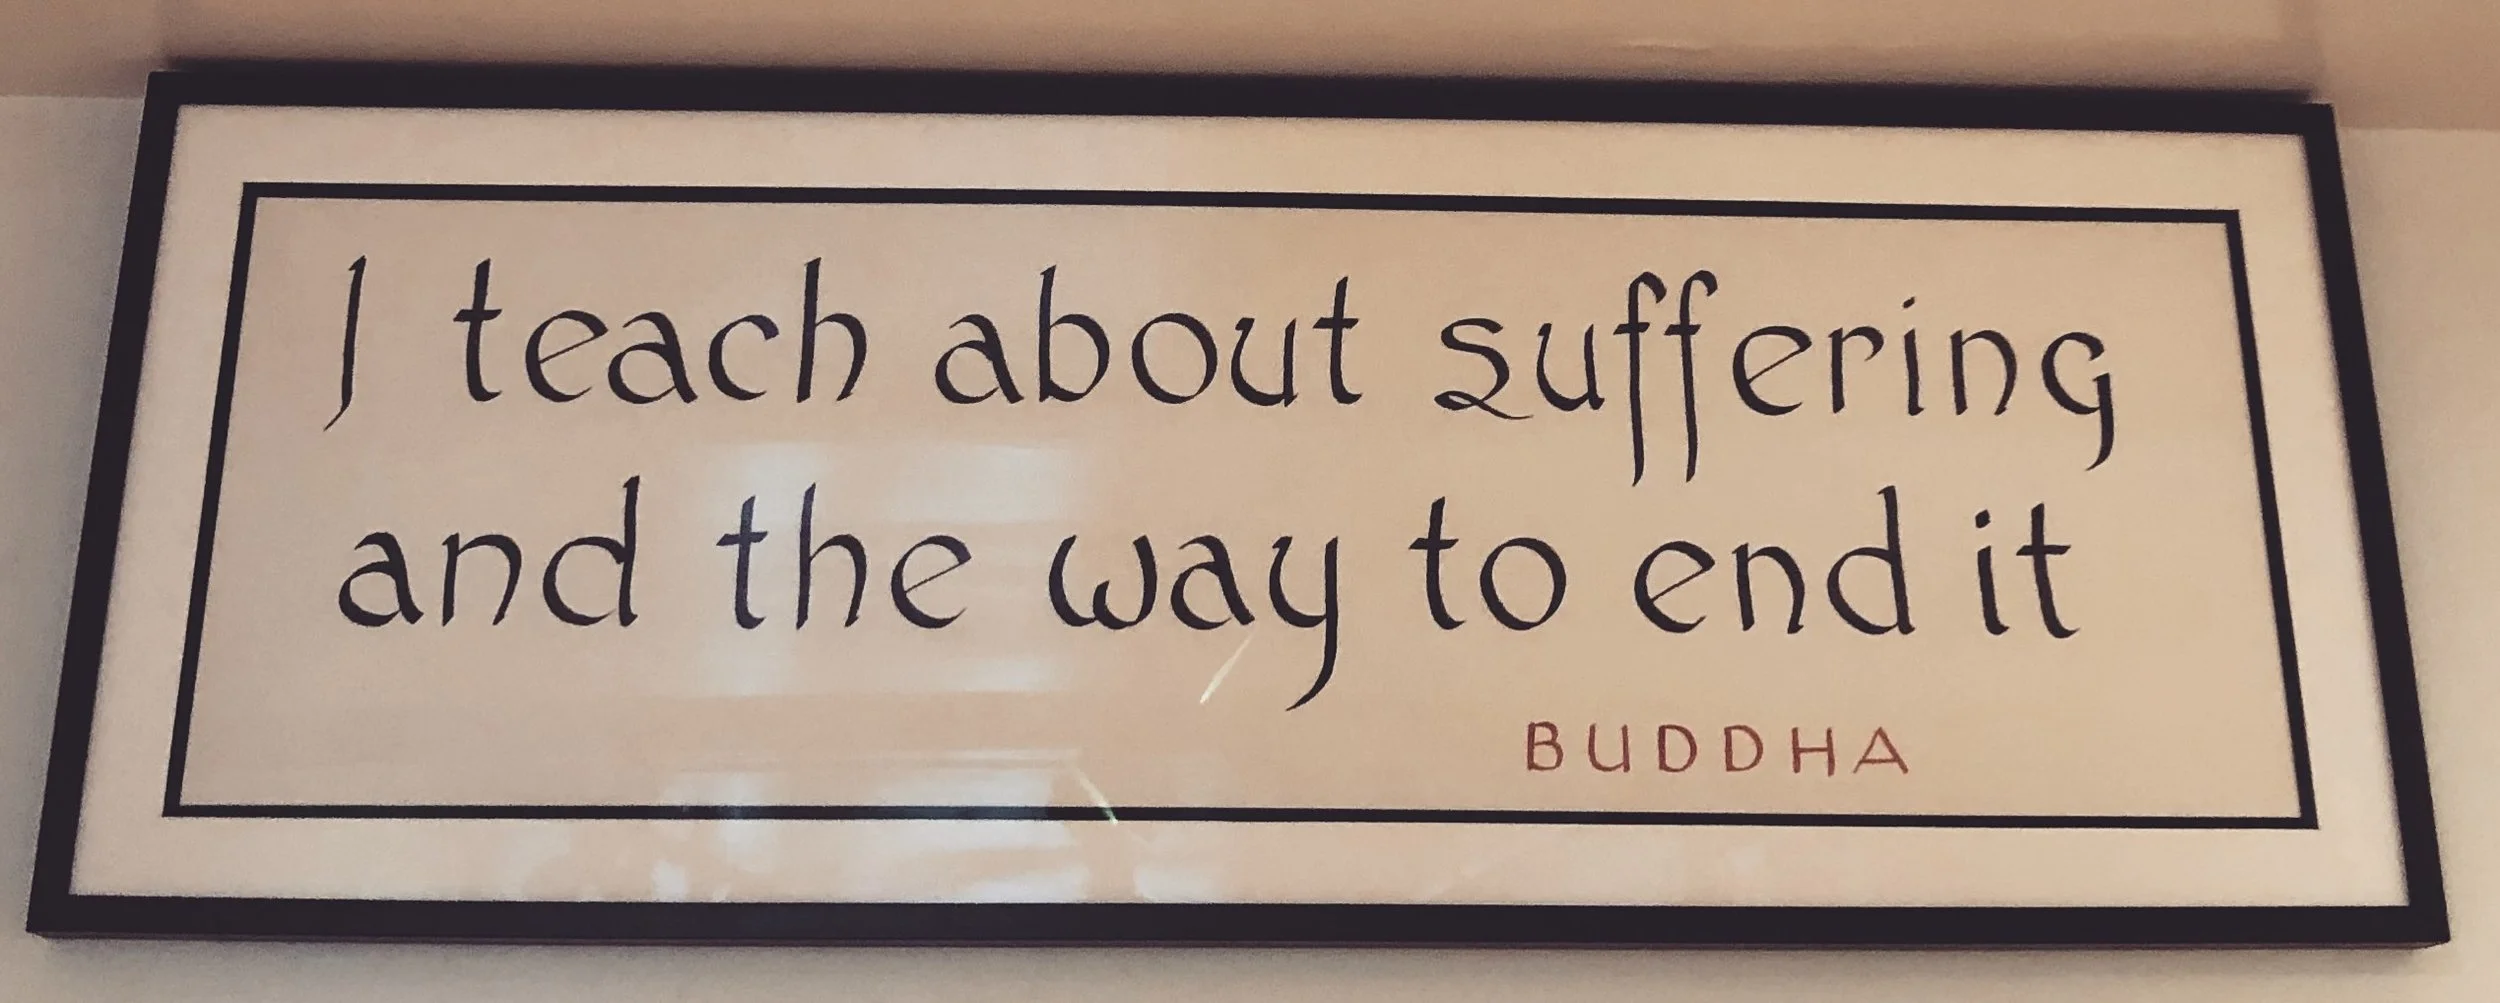 I teach about suffering
and the way to end it
BUDDHA